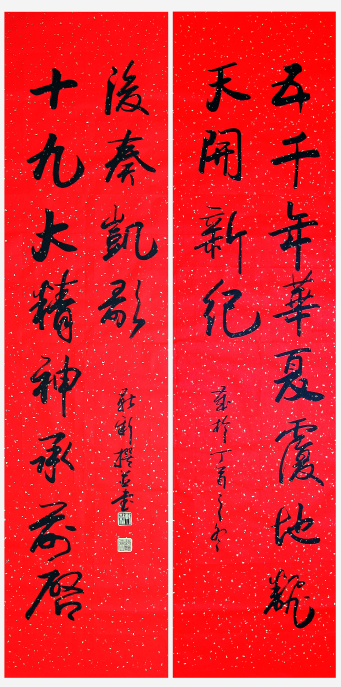 五千年華夏覆地飜
天開新紀
於丁酉之冬
十九大精神承前啓
後奏凱歌
撰并書